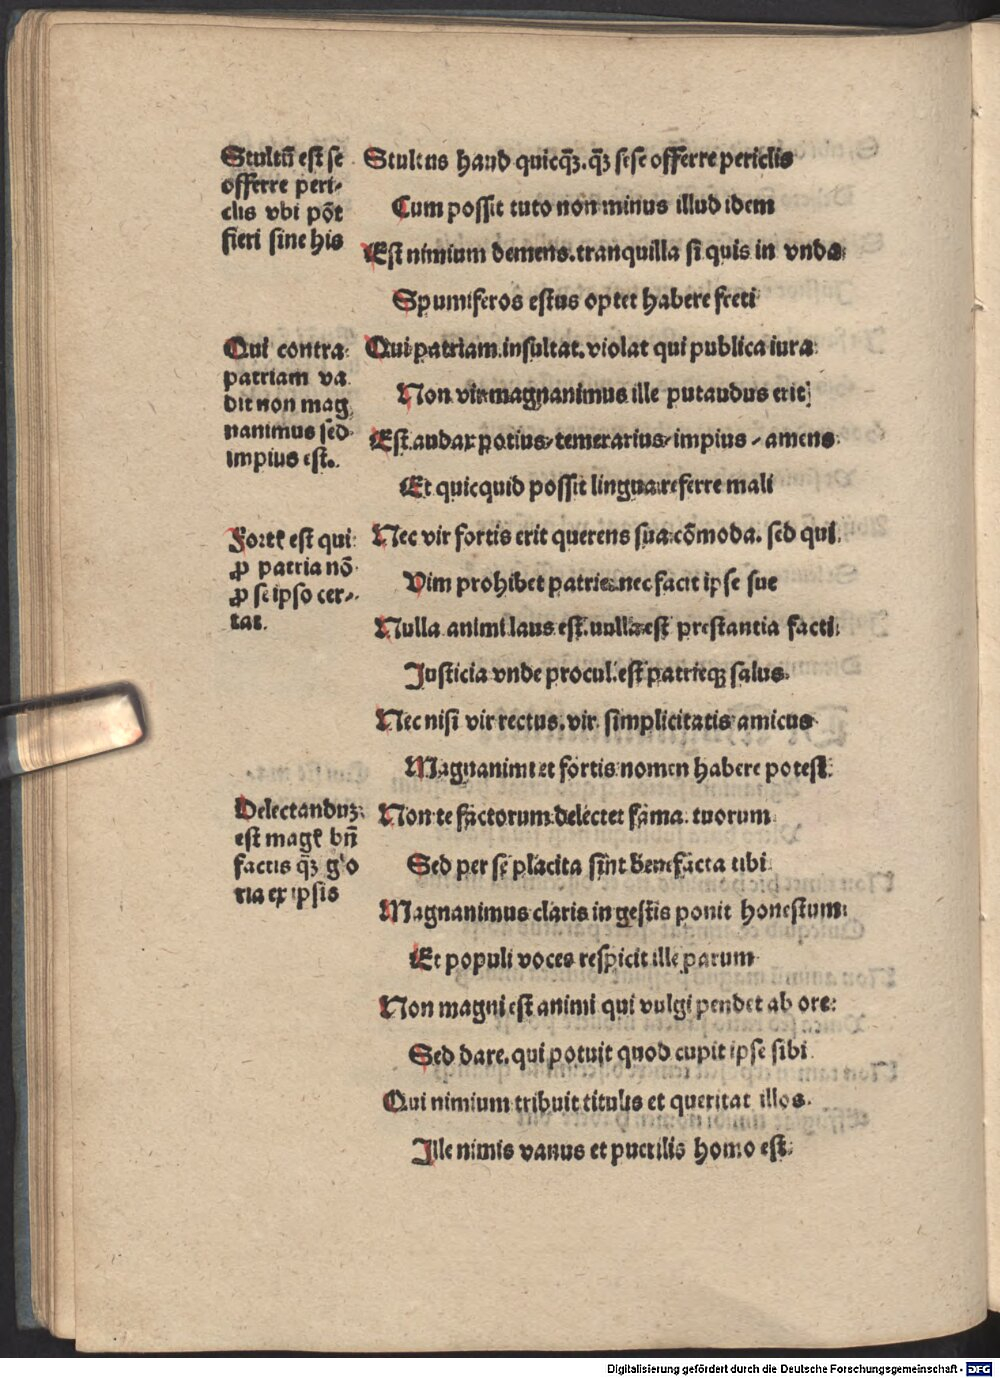 Stultū est se
offerre peri-
clis vbi pōt
fieri sine his
Stultus haud quicqȝ. qȝ sese offerre periclis
Cum possit tuto non minus illud idem
Est nimium demens. tranquilla si quis in vnda
Spumiferos estus optet habere freti
Qui contra
patriam va
dit non mag
nanimus sed
impius est.
Qui patriam insultat. violat qui publica iura
Non vir magnanimus ille putandus erit
Est audax potius/ temerarius/ impius / amens
Et quicquid possit lingua referre mali
Fortꝭ est qui
ꝓ patria nō
ꝓ seipso cer-
tat.
Nec vir fortis erit querens sua cōmoda. sed qui
Vim prohibet patrie. nec facit ipse sue
Nulla animi laus est. nulla est prestantia facti
Justicia vnde procul. est patrieqȝ salus
Nec nisi vir rectus. vir simplicitatis amicus
Magnanimi et fortis nomen habere potest
Delectanduȝ
est magꝭ bn̄
factis qȝ glo
ria ex ipsis
Non te factorum delectet fama tuorum
Sed per se placita sint benefacta tibi
Magnanimus claris in gestis ponit honestum
Et populi voces respicit ille parum
Non magni est animi qui vulgi pendet ab ore:
Sed dare. qui potuit quod cupit ipse sibi
Qui nimium tribuit titulis et queritat illos.
Ille nimis vanus et puerilis homo est
Digitalisierung gefördert durch die Deutsche Forschungsgemeinschaft - DFG